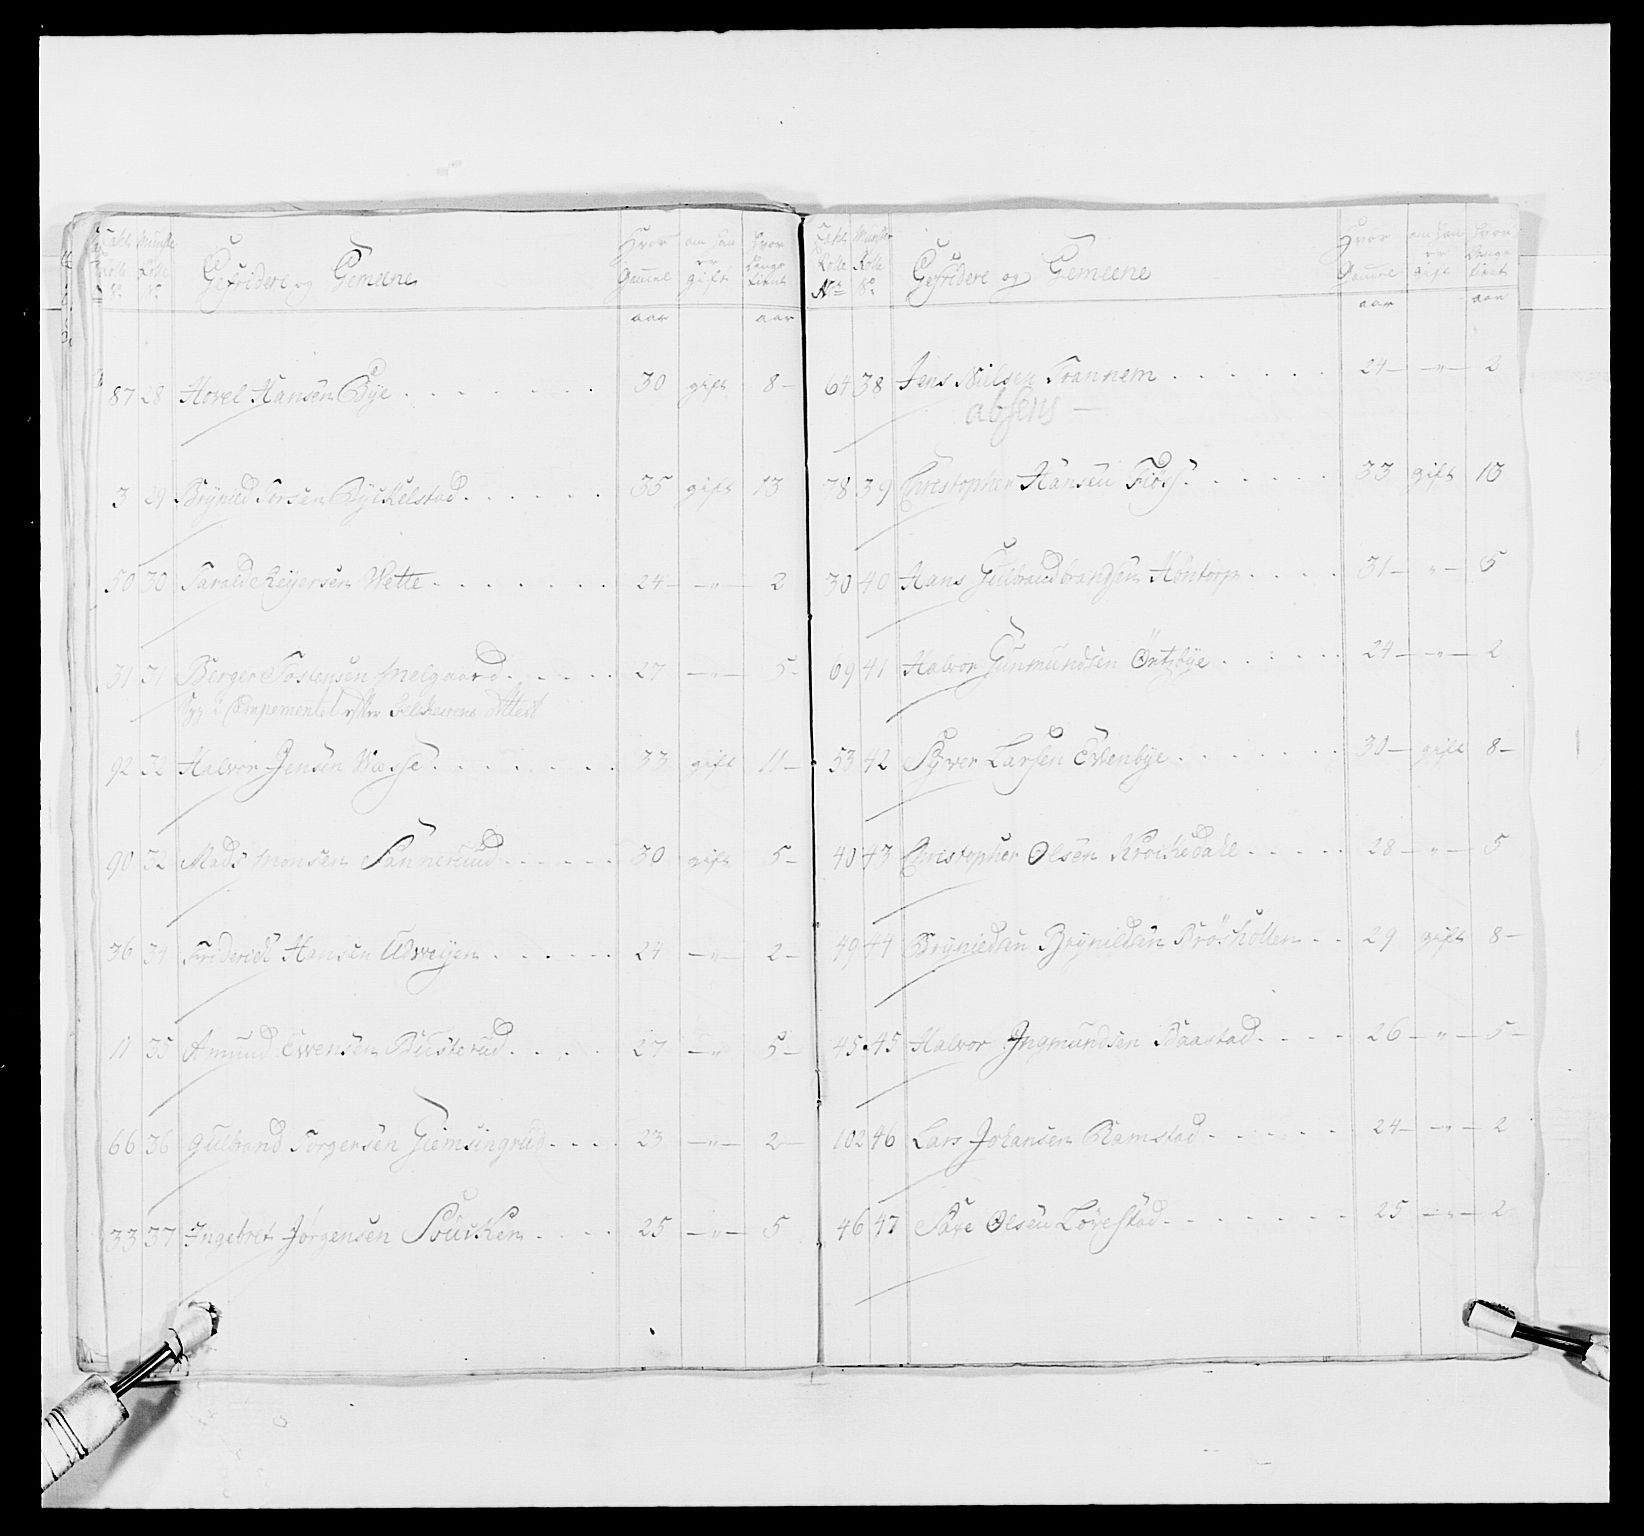 Gefridere og Gemeene
Hvor Gammel
om han er gift
hvor længe tient
aar
aar
87 28 Hovel Hansen Bye 30 gift 8
3 29 Brynild Torsen Byckelstad 35 gift 13
50 30 Tarald Reyersen Wette 24 — " — 2
31 31 Berger Tostensen Melgaard 27 — " — 5
Attest
92 32 Halvor Jensen Wæsse 33 gift 11
90 32 Mads Monsen Sannerüüd 30 gift 5
36 34 Friderick Hansen Udweyen 24 — " — 2
11 35 Amund Ewensen Büsterüd 27 — " 5
66 36 Gulbrand Torgersen Giemsingrüd 23 — " — 2
33 37 Ingebret Jørgensen 25 — " — 5
Rolle No Rolle No
Gefridere og Gemeene
Hvor Gammel
om han er gift
hvor længe tient
aar
aar
64 38 Jens Nielsen Trannem 24 — " — 2
absens —
78 39 Christopher Hansen Fiøs 33 gift 13
30 40 Hans Gulbrandbrandsen Høntorp 31 — " — 5
69 41 Halvor Gunmundsen 24 — " — 2
53 42 Syver Larsen Evenbye 30 — gift 8
40 43 Christopher Olsen Krockedahl 28 — " — 5
49 44 Bryniedsen Brynildsen Brösholten 29 gift 8
45 45 Halvor Ingmundsen Baastad 26 — " — 5
102 46 Lars Johansen Ramstad 24 — " — 2
46 47 Olsen Lörestad 25 — " — 2